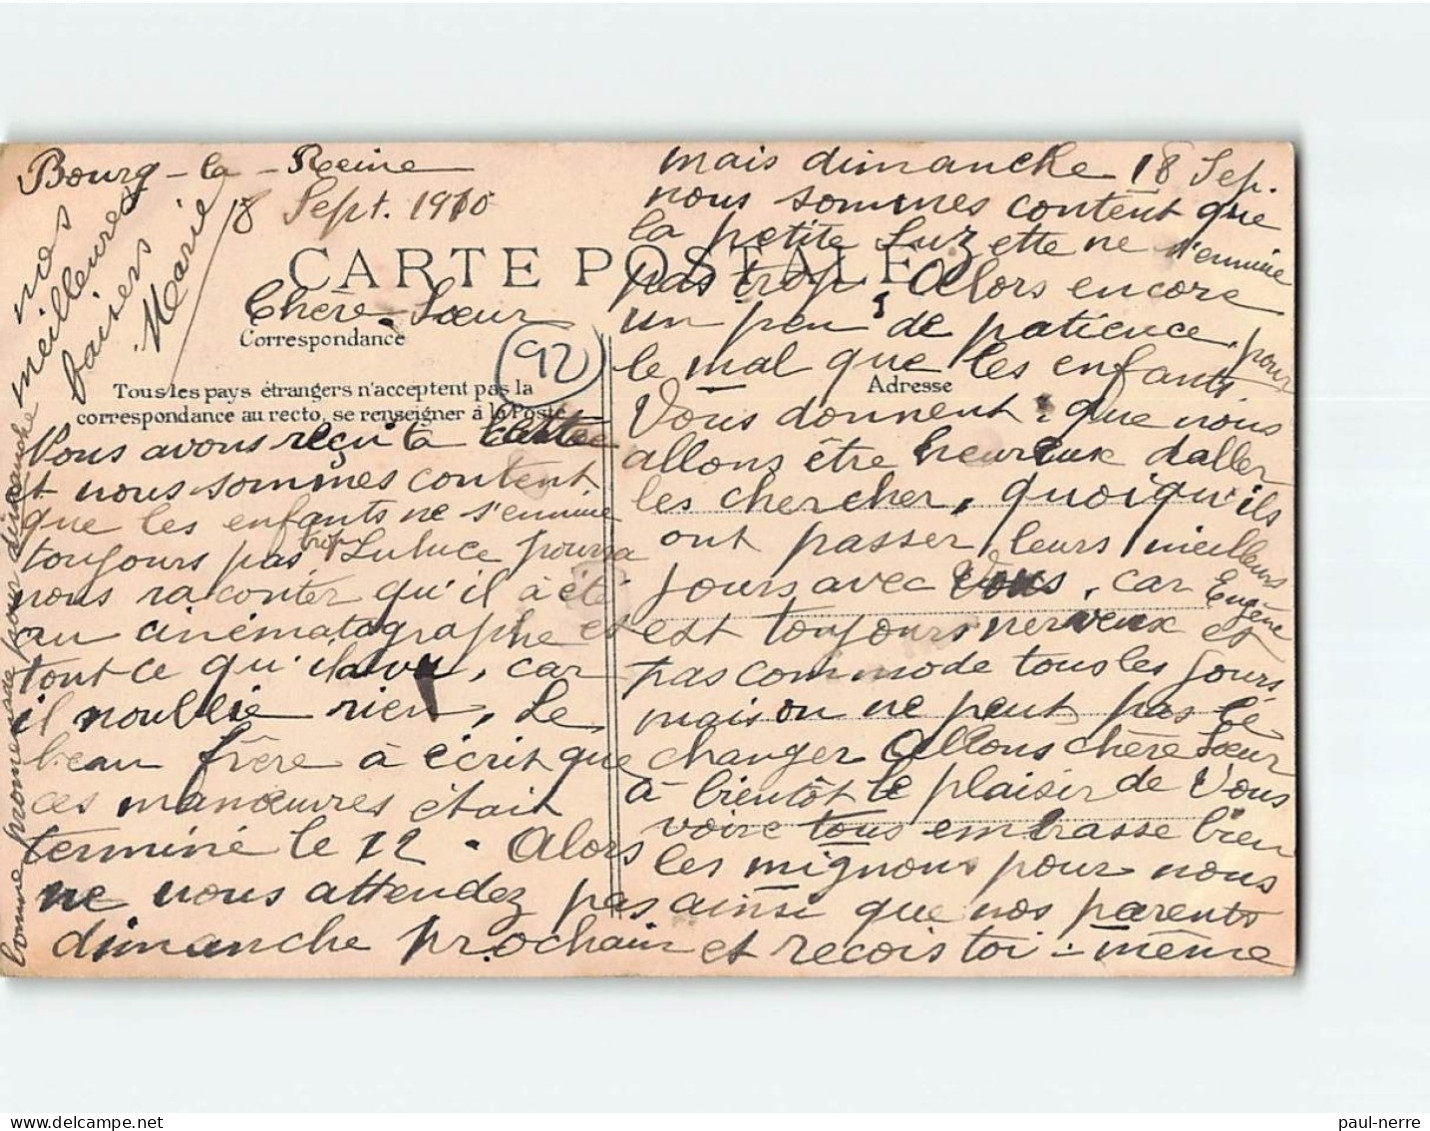 Bourg-la-Reine
8 Sept. 1910
CARTE POSTALE
Chère Sœur
Correspondance
92
Tous les pays étrangers n'acceptent pas la
correspondance au recto, se renseigner à la Poste
Nous avons reçu ta lettre
et nous sommes content
que les enfants ne s'ennuie
toujours pas trop Luluce pourra
nous raconter qu'il à été
au cinématographe et
tout ce qu'il a vu, car
il noublie rien, Le
beau frère à écrit que
ces manœuvres était
terminé le 12. Alors
ne nous attendez pas
dimanche prochain
mais dimanche 18 Sep.
nous sommes content que
la petite Suzette ne s'ennuie
pas trop, Alors encore
un peu de patience, pour
le mal que les enfants
Adresse
Vous donnent : que nous
allons être heureux daller
les chercher, quoiqu'ils
ont passer leurs meilleurs
jours avec Vous, car Eugène
est toujours nerveux et
pas commode tous les jours
mais on ne peut pas le
changer Allons chère Sœur
à bientôt le plaisir de Vous
voire tous embrasse bien
les mignons pour nous
ainsi que nos parents
et recois toi-même
nos
meilleures
baisers
Marie
bonne promenade pour dimanche
paul-nerre